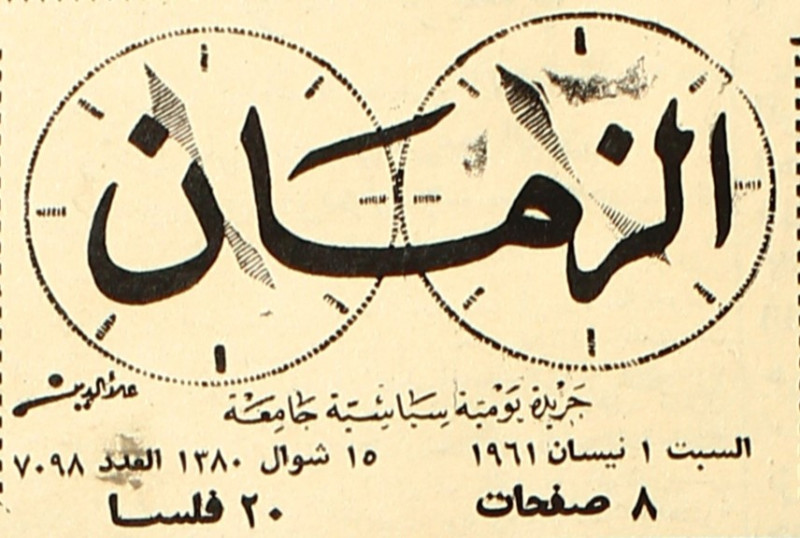 الزمان
علاء الدين
جريدة يومية سياسية جامعة
السبت ١ نيسان ١٩٦١ ١٥ شوال ١٣٨٠ العدد ٧٠٩٨
٨ صفحات ٢٠ فلسا